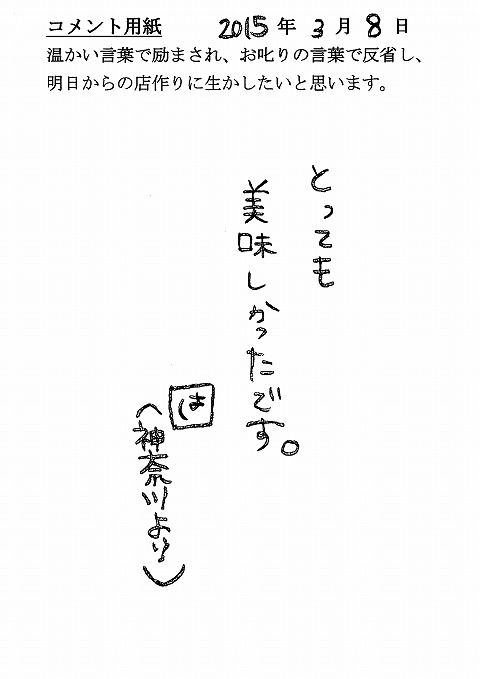 コメント用紙 2015年3月8日
温かい言葉で励まされ、お叱りの言葉で反省し、
明日からの店作りに生かしたいと思います。
とっても
美味しかったです。
は
（神奈川より）